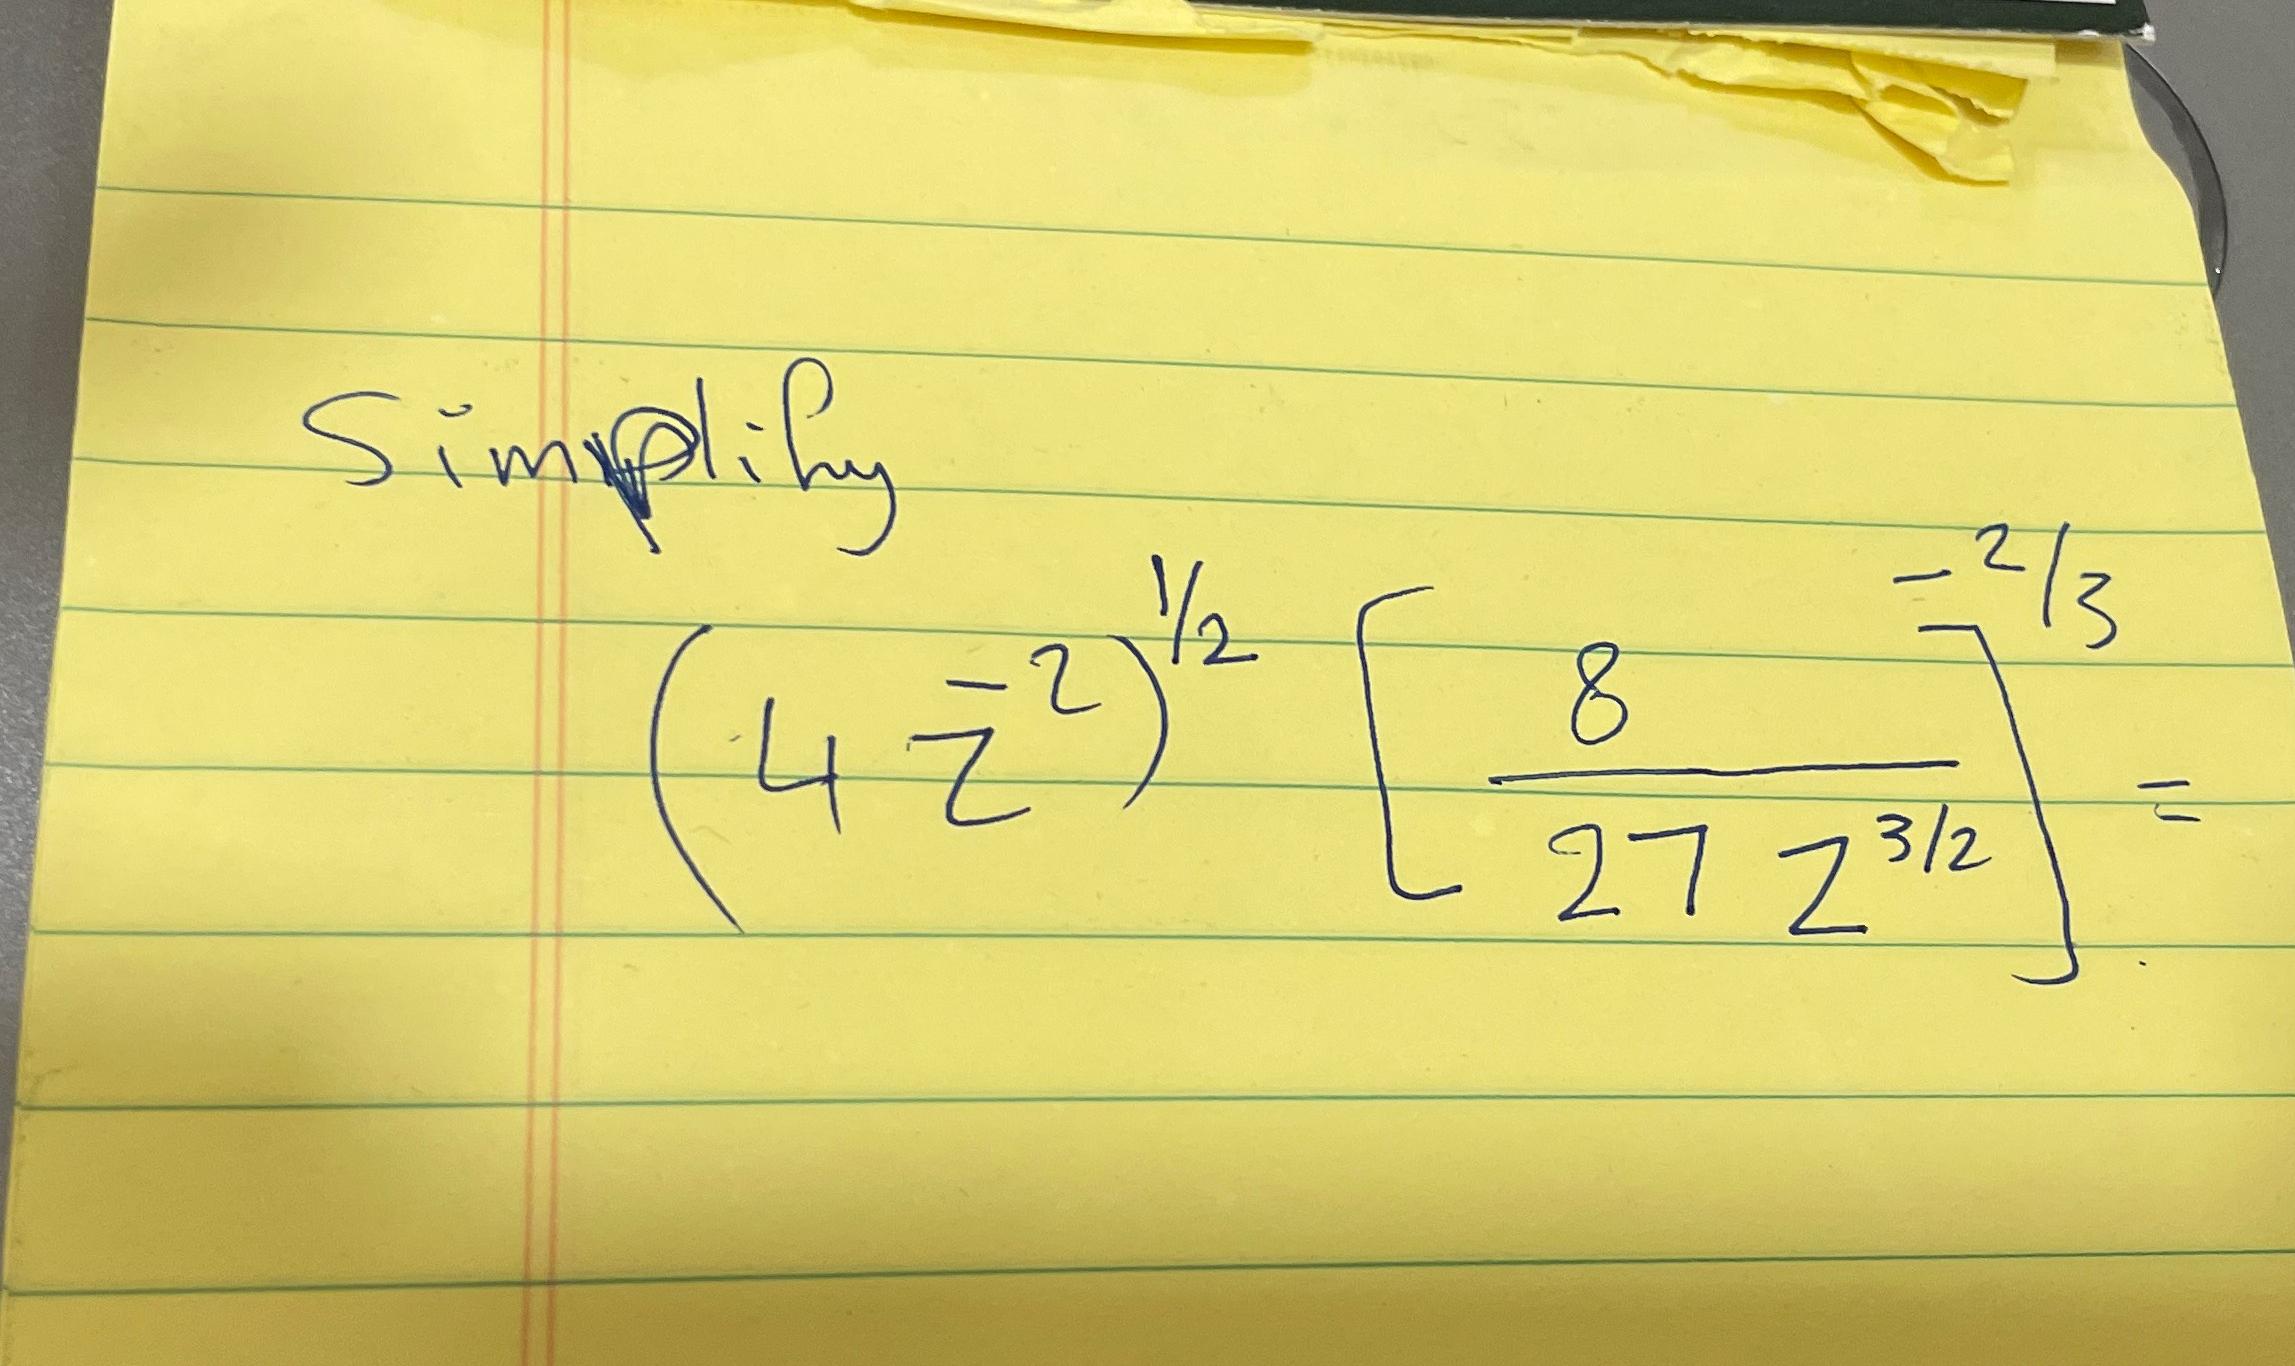 Simplify
(4 z^-2)^1/2 [8 / 27 z^3/2]^-2/3 =